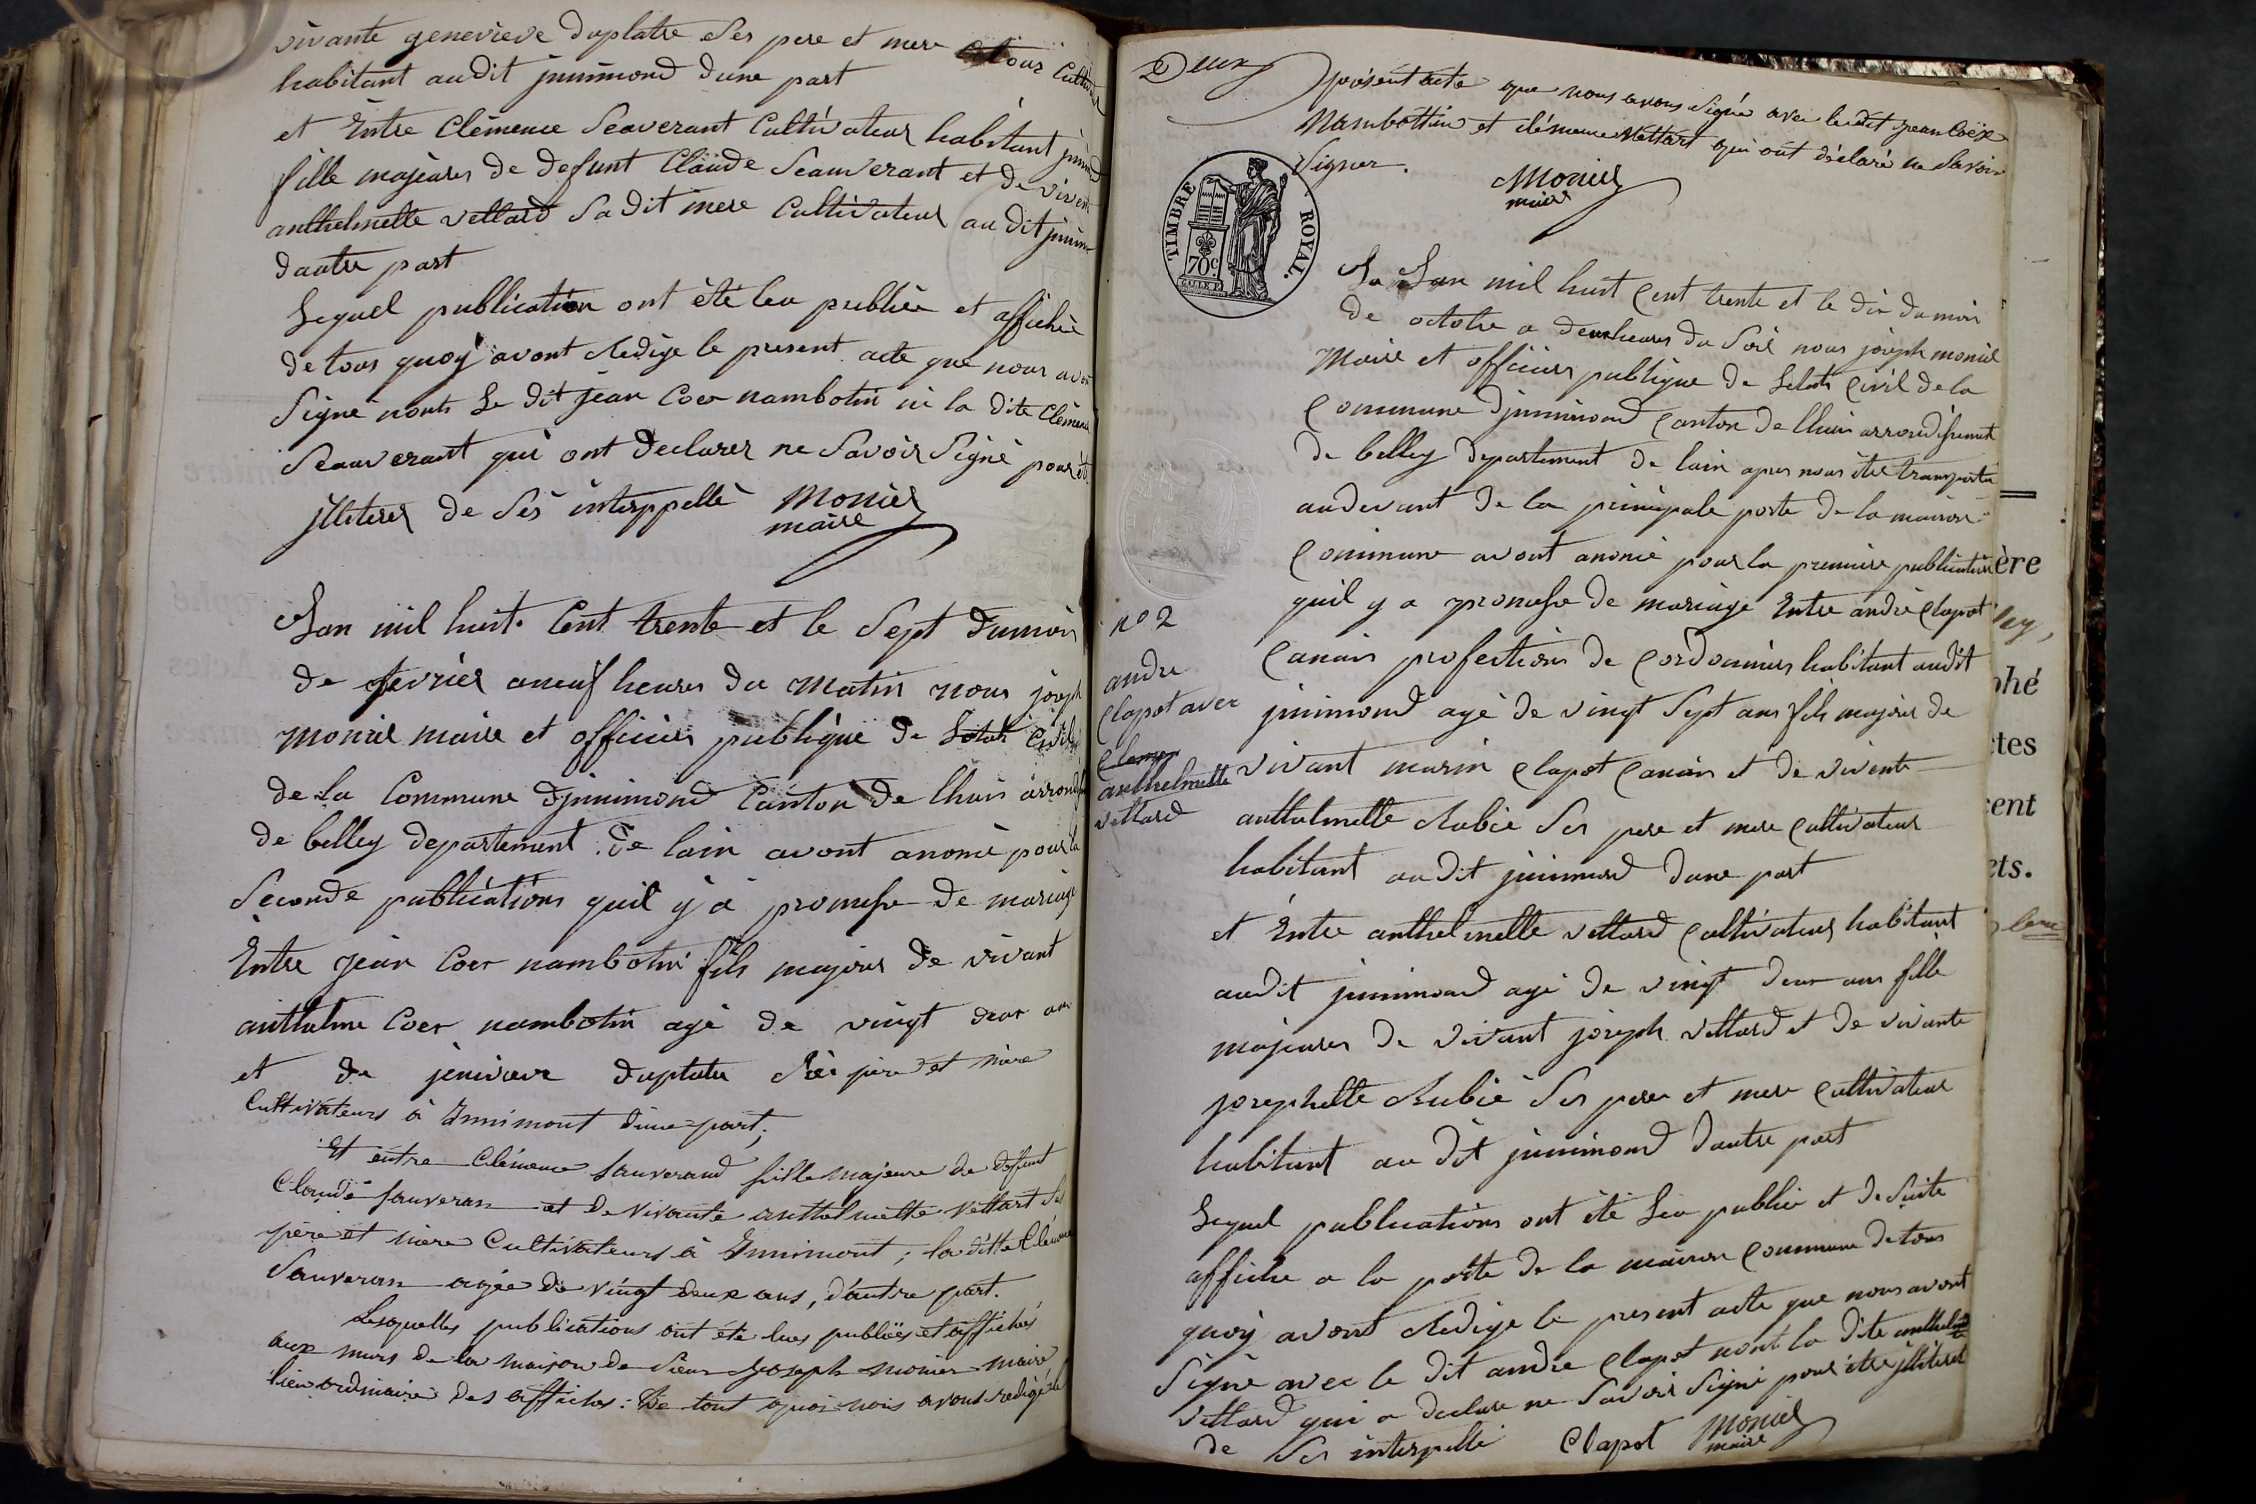 vivante genevieve duplatre Ses pere et mere tous Cultivat
habitant audit jnnimond dune part
et Entre Clémence Seaverant Cultivateur habitant jnnimd
fille majeures de defunt Claude Seauverant et de vivent
anthelmette vettard Sa dit mere Cultivateur au dit jnnim
dautre part
Lequel publication ont été leu publiée et affichée
de tous quoÿ avont Redige le present acte que nous avon
Signé nont Le dit jean Coer nambotin ni la dite Clémence
Seauverant qui ont declarer ne Savoir Signé pour êt
jlliterer de Ses interppellé Monier
maire
Lan mil huit Cent trente et le Sept dumois
de fevrier aneuf heures du matin nous joseph
monier maire et officier publique de Letat Civil
de la Commune djnnimond Canton de lhuis arrond
de belley departement de lain avont anoncé pour la
Seconde publications quil ÿ a promesse de mariage
Entre jean Coer nambotin fils majeur de vivant
anthelme Coer nambotin agé de vingt deux an
et de jenivieve duplatre Ses père et mère
Cultivateurs à Innimont d'une part;
Et entre Clémence Sauverand fille majeure de deffunt
Claude Sauveran et de vivante anthelmette Vettart Ses
père et mère Cultivateurs à Innimont; la ditte Clémence
Sauveran agée de vingt deux ans, d'autre part.
Lesquelles publications ont été lues publiées et affichés
aux murs de la maison de Sieur Joseph Monier maire
lieu ordinaire des affiches: De tout quoi nous avons redigé le
Deux
présent acte que nous avons Signé avec le dit Jean Coëx
Nambottin et clémence Vettart qui ont déclaré ne Savoir
Signer.
Monier
maire
TIMBRE ROYAL.
70c
n° 2
andre
Clapot avec
Clemen
anthelmette
vettard
La Lan mil huit Cent trente et le dix du mois
de octobre a deux heures du Soir nous joseph monier
Maire et officier publique de Letat Civil de la
Commune djnnimond Canton de lhuis arrondisement
de belley departement de lain apres nous être transporté
audevant de la principale porte de la maison
Commune avont anoncé pour la premiere publication
quil y a promesse de mariage Entre andré Clapot
Canain profections de Cordonnier habitant audit
jnnimond agé de vingt Sept ans fils majeur de
vivant marin Clapot Canain et de vivente
anthelmette Rubié Ses pere et mere Cultivateur
habitant au dit jnnimond dune part
et Entre anthelmette vettard Cultivateur habitant
audit jnnimond agé de vingt deux ans fille
majeures de vivant joseph vettard et de vivante
josephette Rubié Ses pere et mere Cultivateur
habitant au dit jnnimond dautre part
Lequel publications ont été Leu publié et de Suite
affiche a la porte de la maison Commune de tous
quoy avont Redige le present acte que nous avont
Signé avec le dit andre Clapot nont la dite anthelmette
vettard qui a declare ne Savoir Signé pour être jlliteret
de Ses interpellé Clapot Monier
maire
ère
ley,
phé
ctes
cent
ets.